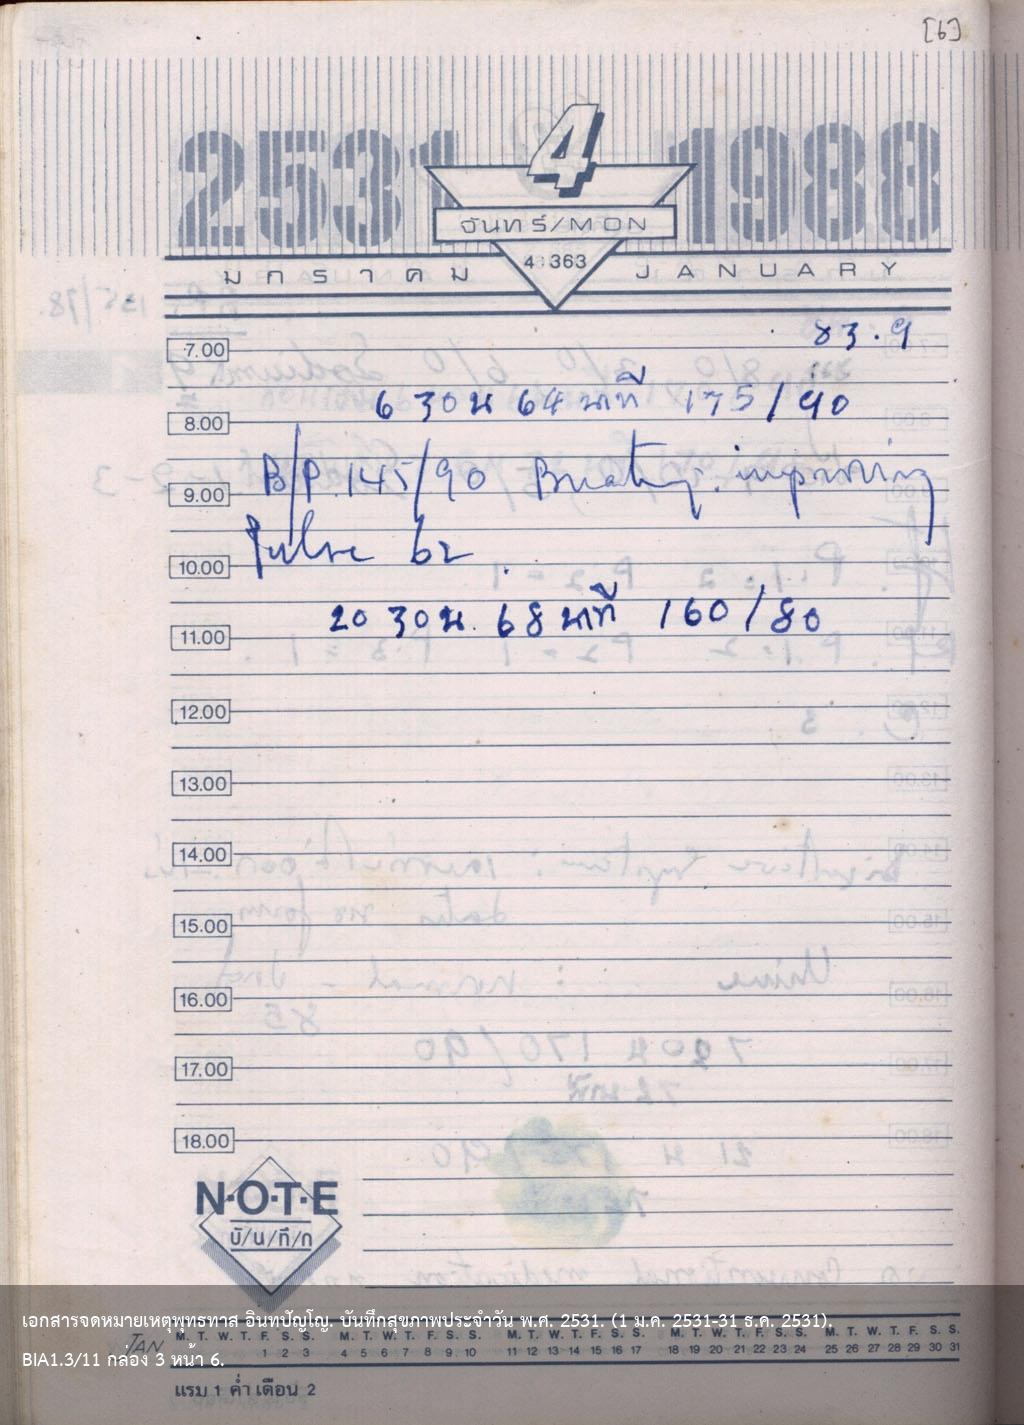 [6]
2531 4 1988
จันทร์/MON
363
มกราคม JANUARY
83.9
7.00
6 30น 64 นาที 175/90
8.00
B/P. 145/90
9.00
Pulse 62
10.00
20 30น. 68 นาที 160/80
11.00
12.00
13.00
14.00
15.00
16.00
17.00
18.00
N·O·T·E
บั/น/ทึ/ก
เอกสารจดหมายเหตุพุทธทาส อินทปัญโญ. บันทึกสุขภาพประจำวัน พ.ศ. 2531. (1 ม.ค. 2531-31 ธ.ค. 2531).
JAN M. T. W. T. F. S. S. M. T. W. T. F. S. S. M. T. W. T. F. S. S. M. T. W. T. F. S. S. M. T. W. T. F. S. S.
1 2 3 4 5 6 7 8 9 10 11 12 13 14 15 16 17 18 19 20 21 22 23 24 25 26 27 28 29 30 31
BIA1.3/11 กล่อง 3 หน้า 6.
แรม 1 ค่ำ เดือน 2